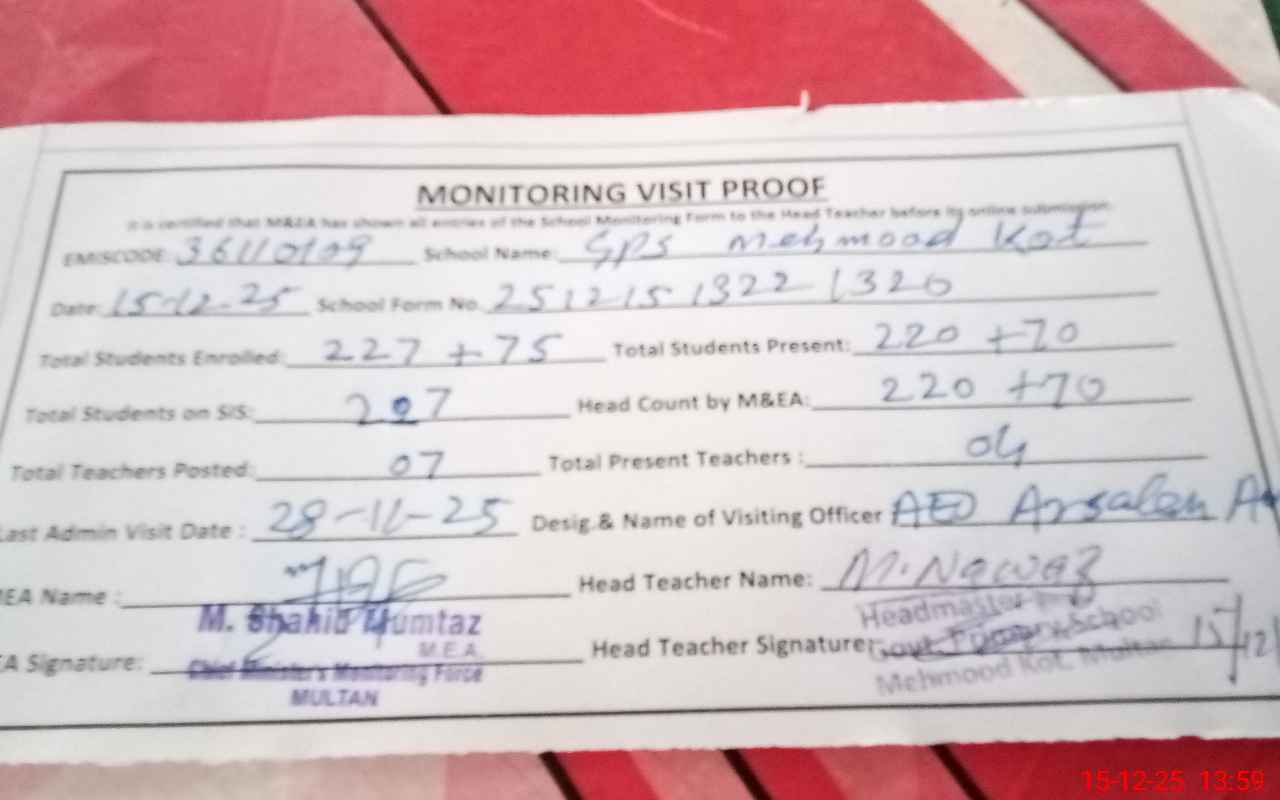 MONITORING VISIT PROOF
It is certified that M&EA has shown all entries of the School Monitoring Form to the Head Teacher before its online submission.
EMISCODE: 36110109 School Name: GPS Mehmood Kot
Date: 15-12-25 School Form No. 251215 1322 1320
Total Students Enrolled: 227 + 75 Total Students Present: 220 +70
Total Students on SIS: 207 Head Count by M&EA: 220 +70
Total Teachers Posted: 07 Total Present Teachers : 04
Last Admin Visit Date : 28-11-25 Desig.& Name of Visiting Officer AEO Arsalan
EA Name : Head Teacher Name: M. Nawaz
M. Shahid Mumtaz
M.E.A.
Chief Minister's Monitoring Force
MULTAN
EA Signature: Head Teacher Signature: 15/12
Headmaster
Govt. Primary School
Mehmood Kot, Multan
15-12-25 13:59